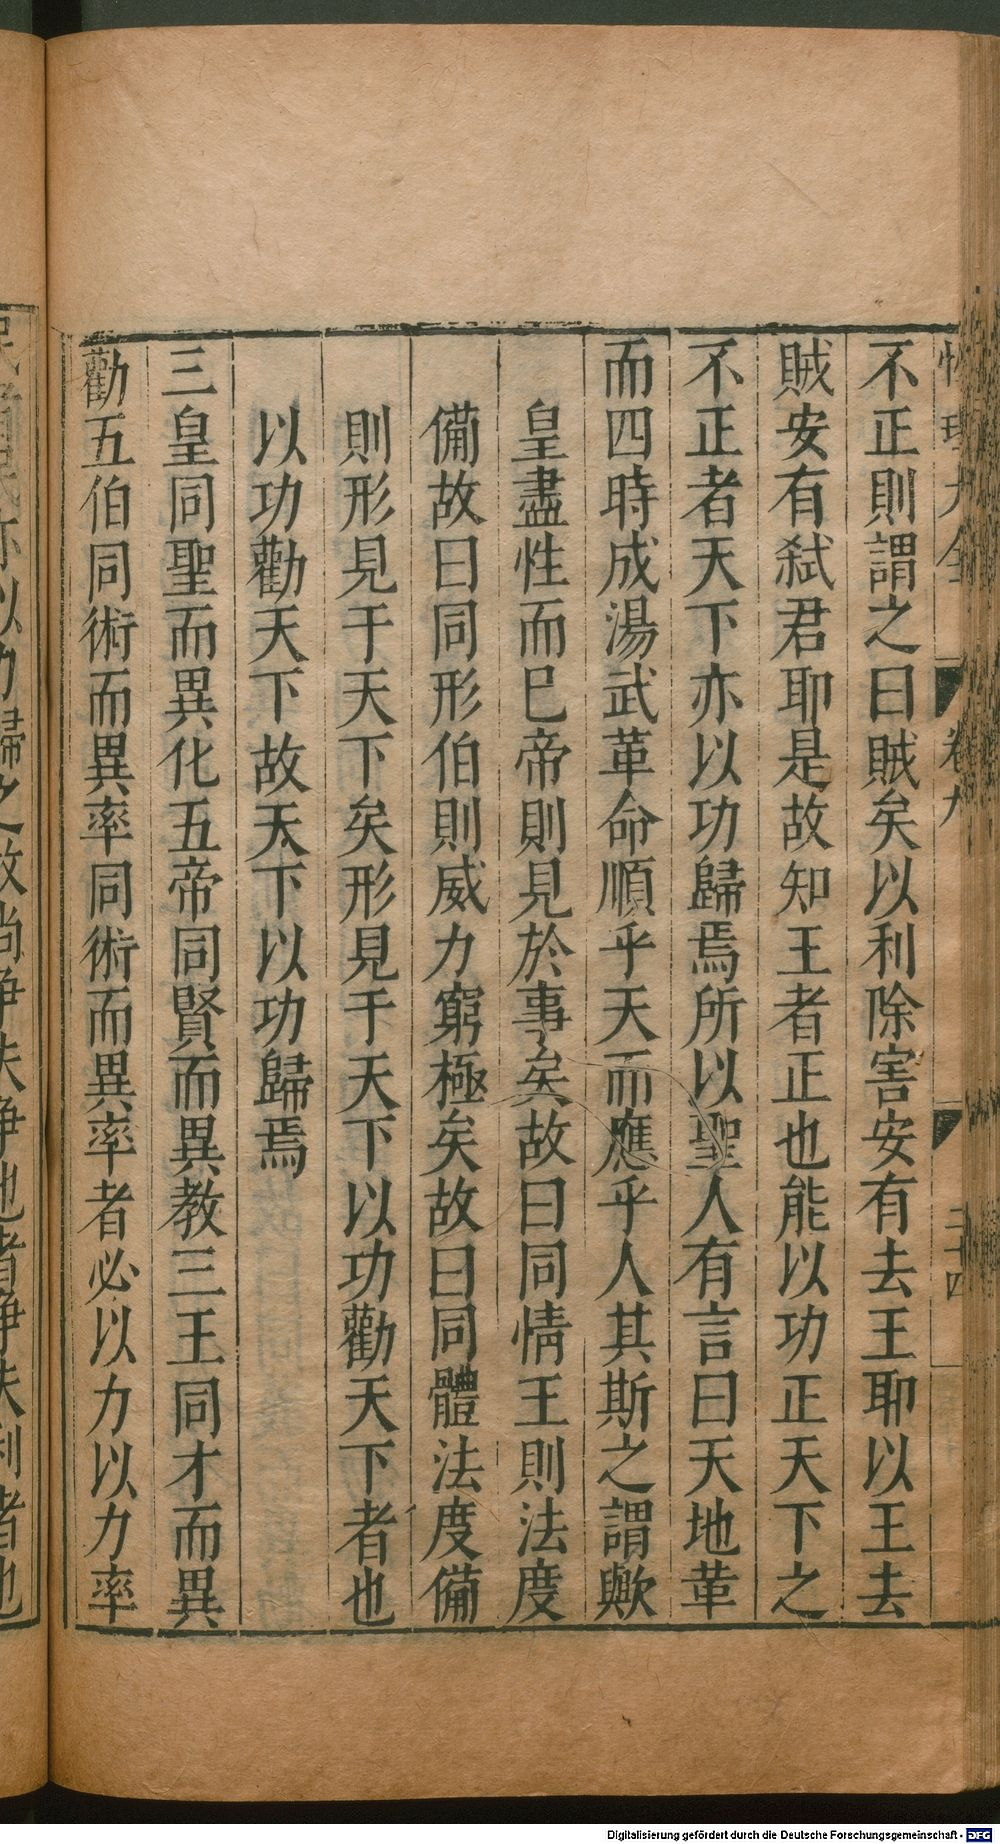 性理大全 卷九 二十四
不正則謂之曰賊矣以利除害安有去王耶以王去
賊安有弑君耶是故知王者正也能以功正天下之
不正者天下亦以功歸焉所以聖人有言曰天地革
而四時成湯武革命順乎天而應乎人其斯之謂歟
皇盡性而已帝則見於事矣故曰同情王則法度
備故曰同形伯則威力窮極矣故曰同體法度備
則形見于天下矣形見于天下以功勸天下者也
以功勸天下故天下以功歸焉
三皇同聖而異化五帝同賢而異教三王同才而異
勸五伯同術而異率同術而異率者必以力以力率
亦以力歸之故尚爭夫爭也者爭夫利者也
Digitalisierung gefördert durch die Deutsche Forschungsgemeinschaft - DFG